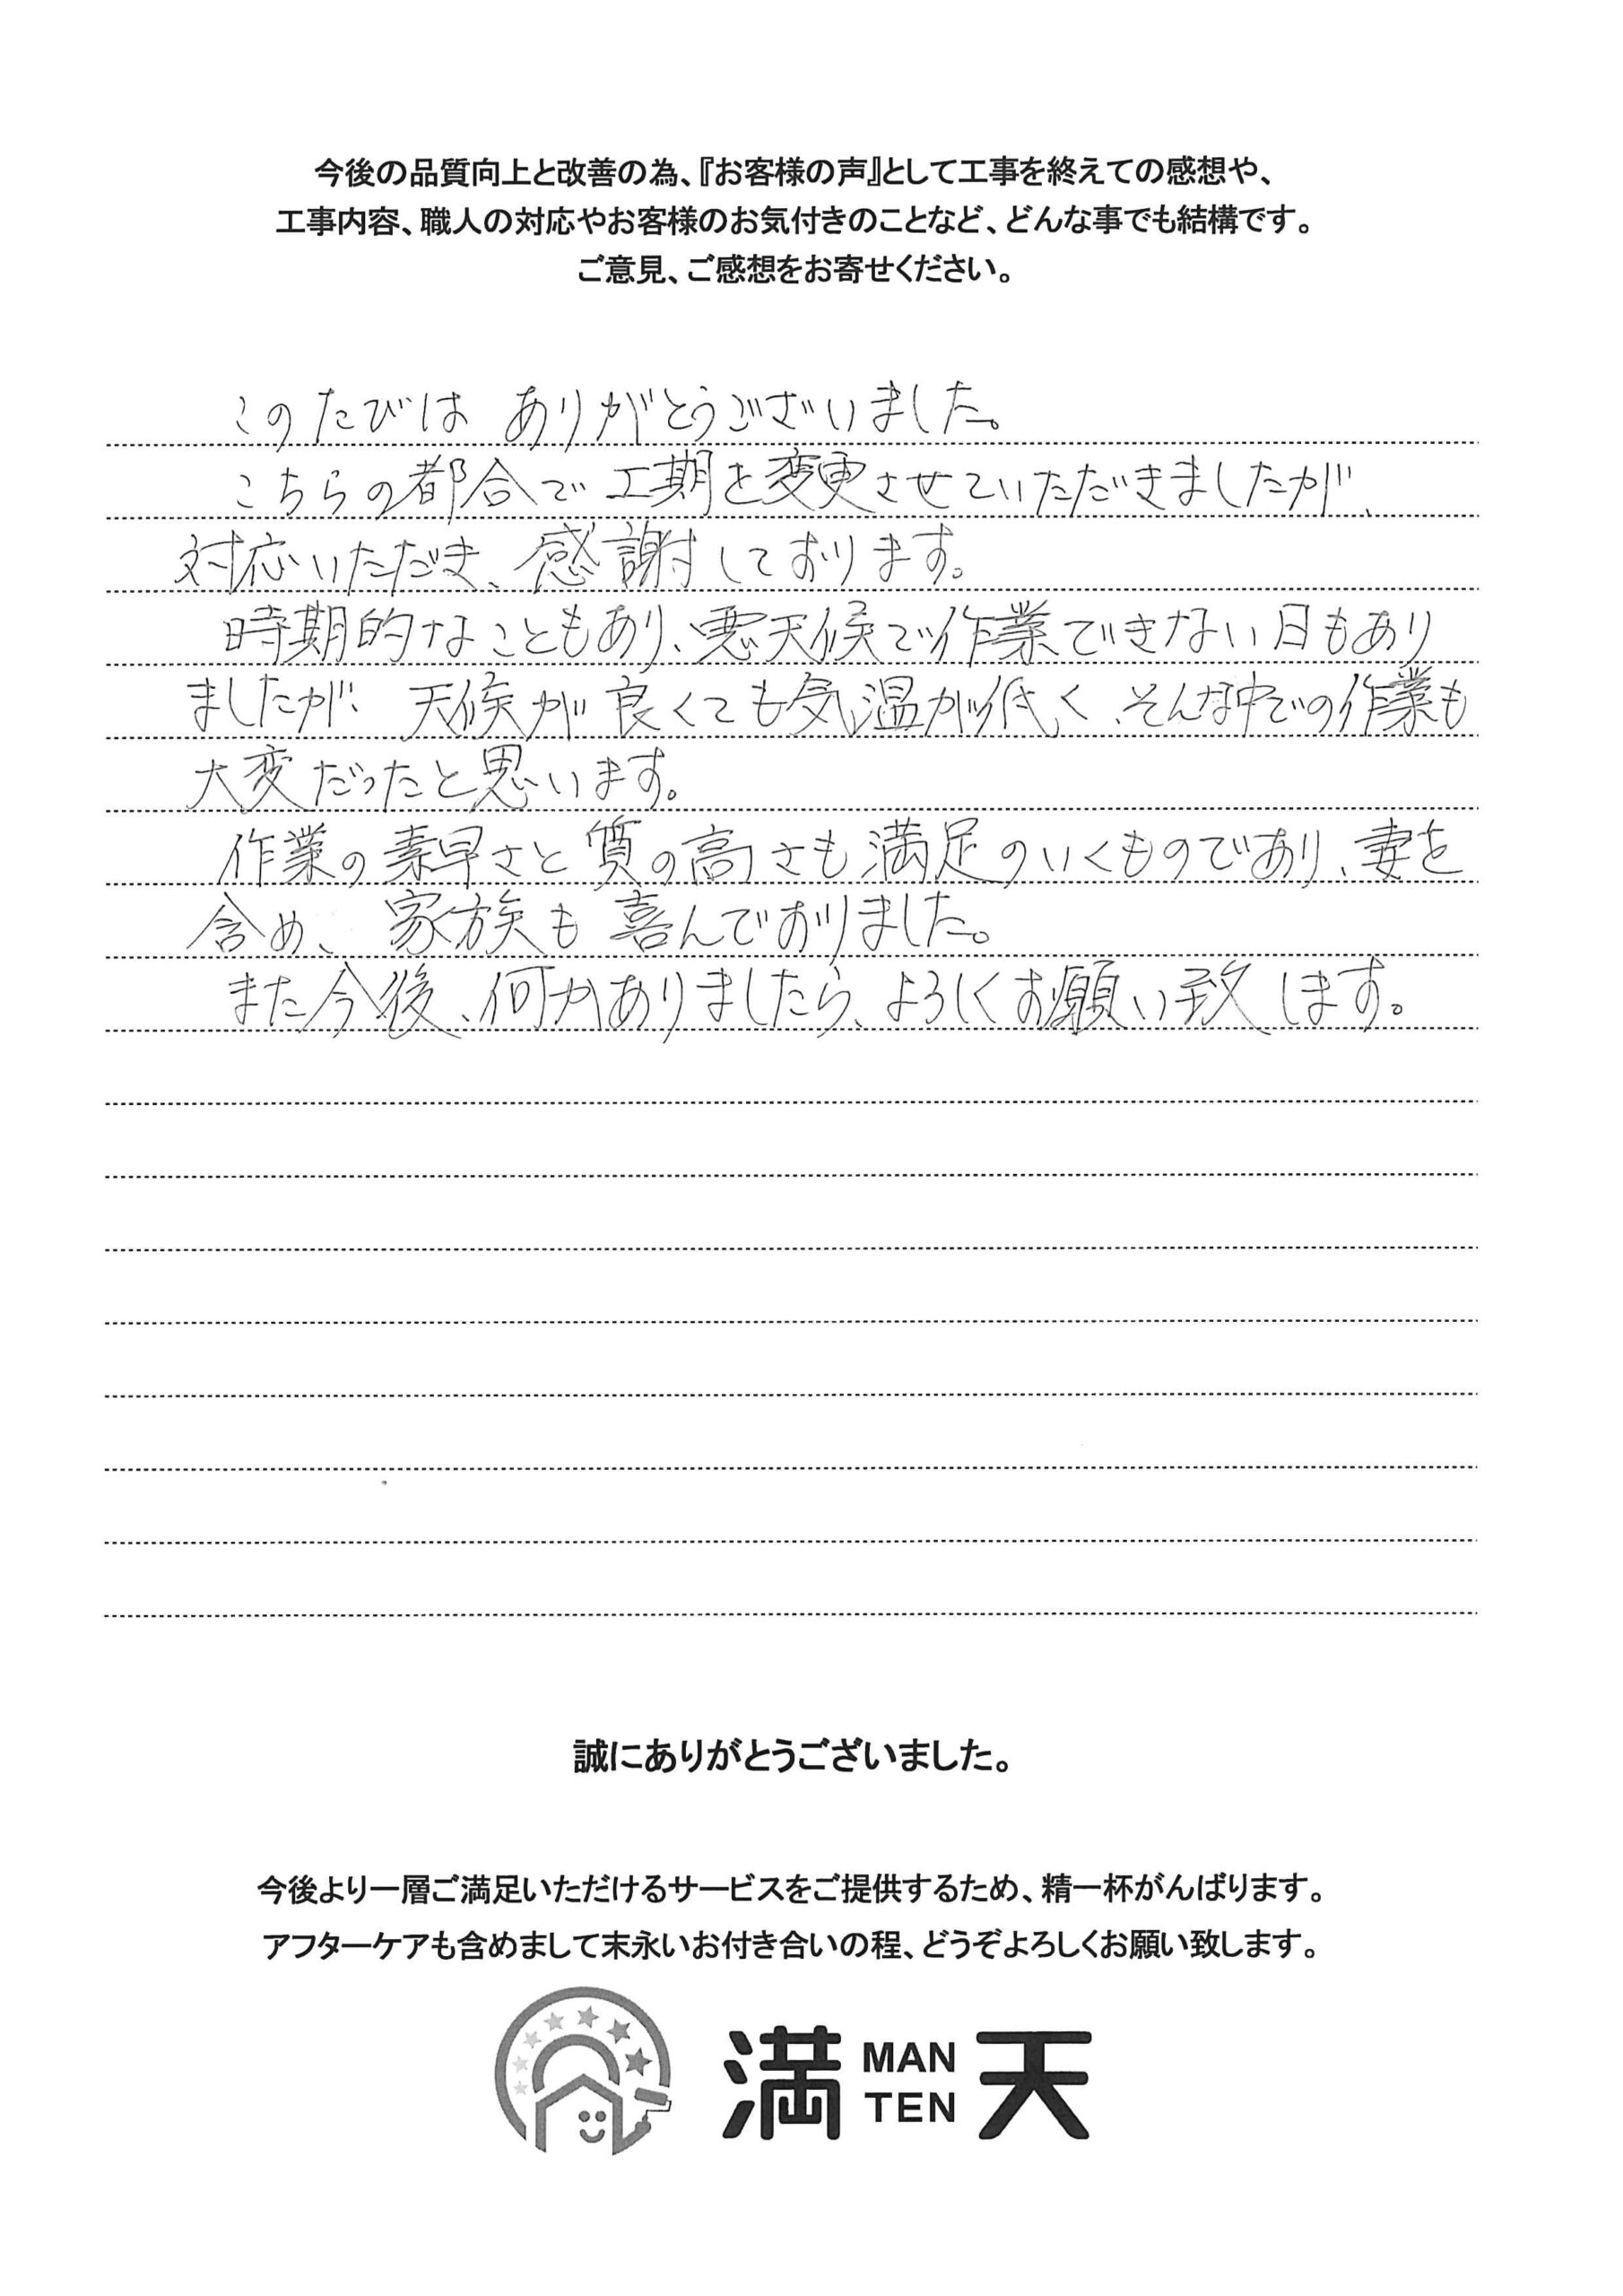 今後の品質向上と改善の為、『お客様の声』として工事を終えての感想や、
工事内容、職人の対応やお客様のお気付きのことなど、どんな事でも結構です。
ご意見、ご感想をお寄せください。
このたびは ありがとうございました。
こちらの都合で工期を変更させていただきましたが、
対応いただき、感謝しております。
時期的なこともあり、悪天候で作業できない日もあり
ましたが、天候が良くても気温が低く、そんな中での作業も
大変だったと思います。
作業の素早さと質の高さも満足のいくものであり、妻を
含め、家族も喜んでおりました。
また今後、何かありましたら、よろしくお願い致します。
誠にありがとうございました。
今後より一層ご満足いただけるサービスをご提供するため、精一杯がんばります。
アフターケアも含めまして末永いお付き合いの程、どうぞよろしくお願い致します。
満 MAN TEN 天